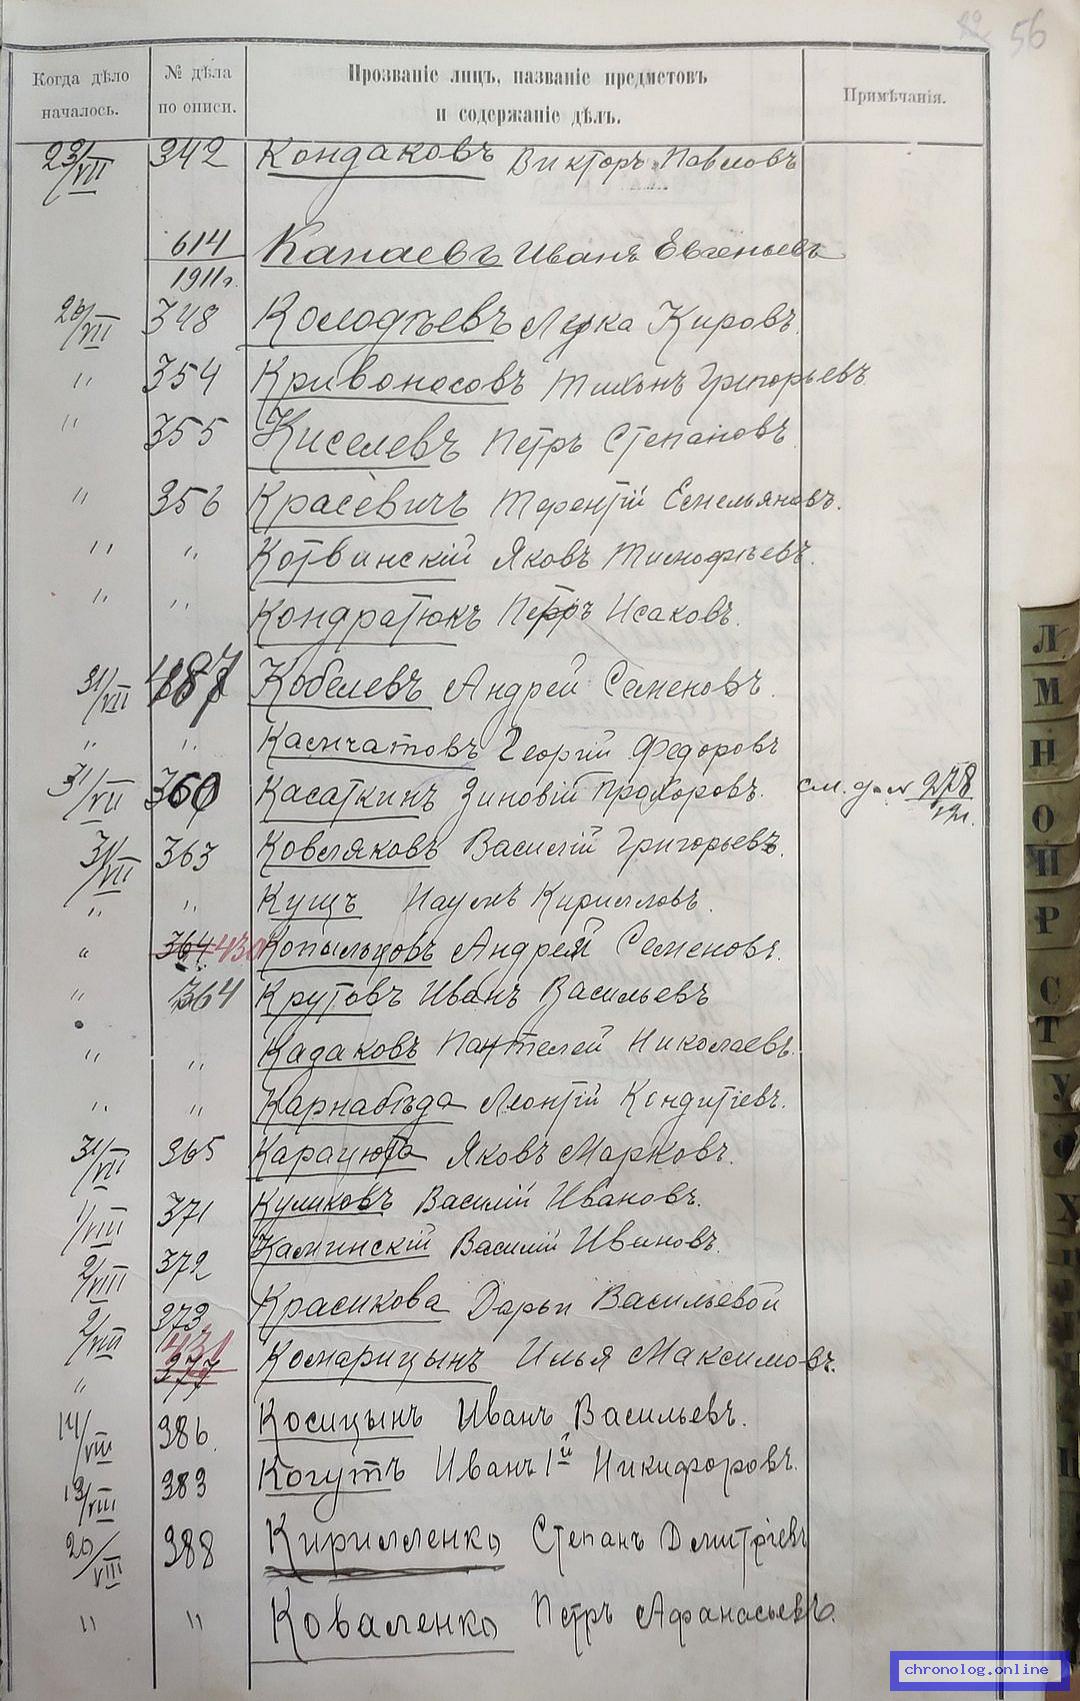 56
Когда дѣло началось.
№ дѣла по описи.
Прозваніе лицъ, названіе предметовъ и содержаніе дѣлъ.
Примѣчанія.
23/VII 342 Кондаковъ Викторъ Павловъ
614/1911г. Капаевъ Иванъ Евгеньевъ
26/VII 348 Колодѣевъ Лука Кировъ.
" 354 Кривоносовъ Тихонъ Григорьевъ
" 355 Киселевъ Петръ Степановъ
" 356 Красевичъ Терентій Емельяновъ.
" " Котвинскій Яковъ Тимофѣевъ.
" " Кондратюкъ Петръ Исаковъ.
31/VII 487 Кобелевъ Андрей Семеновъ.
" " Камчатовъ Георгій Федоровъ
31/VII 360 Касаткинъ Зиновій Прохоровъ. см. д. № 278
31/VII 363 Ковляковъ Василій Григорьевъ.
" " Кущъ Наумъ Кирилловъ.
" 364 430 Копыльцовъ Андрей Семеновъ.
" 364 Крутовъ Иванъ Васильевъ
" " Казаковъ Пантелей Николаевъ.
" " Карнабѣда Леонтій
31/VII 365 Карацюта Яковъ Марковъ.
1/VIII 371 Куликовъ Василій Ивановъ.
2/VIII 372 Каминскій Василій Ивановъ.
2/VIII 373 Красикова Дарьи Васильевой
" 431 377 Комарицынъ Илья Максимовъ.
14/VIII 386 Косицынъ Иванъ Васильевъ.
13/VIII 383 Когутъ Иванъ 1й Никифоровъ.
20/VIII 388 Кирилленко Степанъ Дмитріевъ
" " Коваленко Петръ Афанасьевъ.
Л
М
Н
О
П
Р
С
Т
У
Х
chronolog.online